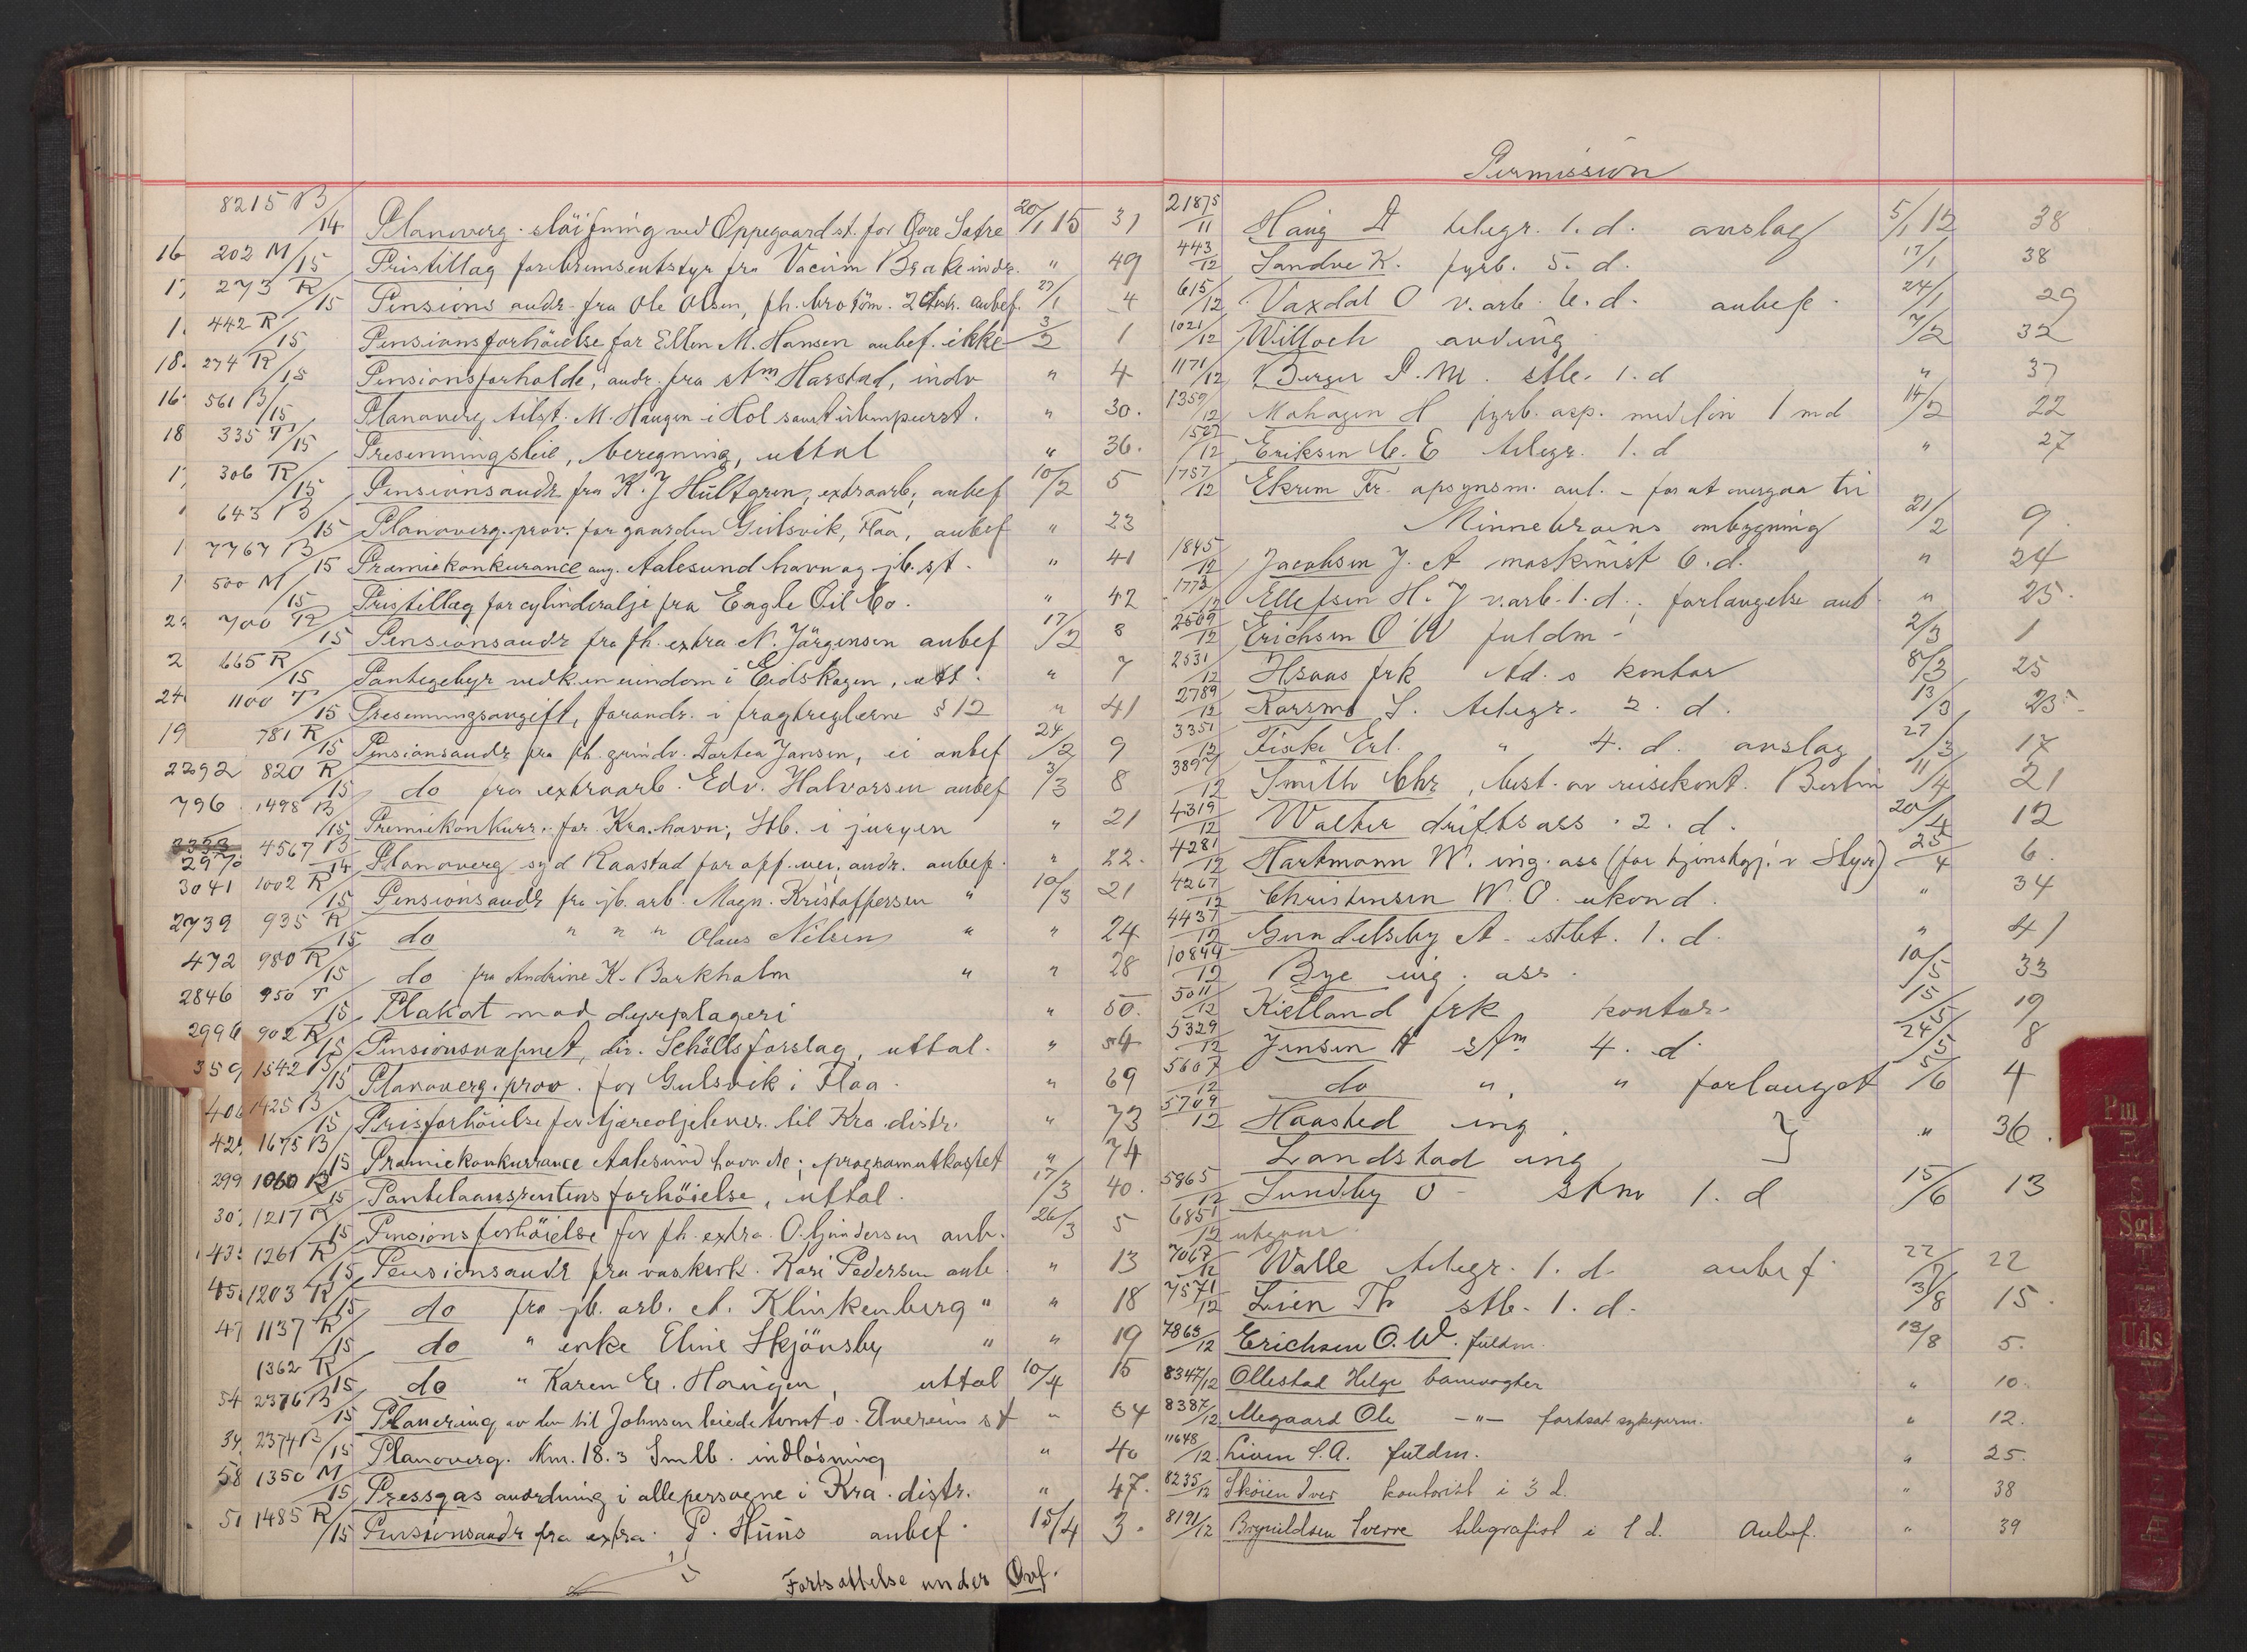 8215 B/14 Planoverg. slöifning ved Oppegaard st. for Gore Sætre 20/1 15 31
16 202 M/15 Pristillæg for bremseutstyr fra Vacuum Brake indr. " 49
17 273 R/15 Pensions andr. fra Ole Olsen, fh. brotöm. 2 distr. anbef. 27/1 4
1. 442 R/15 Pensionsforhöielse for Ellen M. Hansen anbef. ikke 3/2 1
18. 274 R/15 Pensionsforholde, andr. fra stm Harstad, indv " 4
16 561 B/15 Planoverg tilst. M. Haugen i Hol " 30.
18 335 T/15 Presenningsleie, beregning, uttal " 36.
1, 306 R/15 Pensionsandr fra K. J Hultgren, extraarb, anbef 10/2 5
643 B/15 Planoverg. prov. for gaarden Gulsvik, Flaa, anbef " 23
1 7767 B/15 Præmiekonkurance ang. Aalesund havn og jb. st. " 41
1 500 M/15 Pristillæg for cylinderolje fra Eagle Oil Co. " 42
22 700 R/15 Pensionsandr fra fh. extra N. Jörgensen anbef 17/2 8
2 665 R/15 Pantegebyr vedk. en eiendom i Eidskogen, utt. " 7
24 1100 T/15 Presenningsavgift, forandr. i fragtreglerne § 12 " 41
19 781 R/15 Pensionsandr fra fh. grindv. Dortea Jansen, ei anbef 24/2 9
2292 820 R/15 do fra extraarb. Edv. Halvorsen anbef 3/3 8
796 1498 B/15 Premiekonkurr. for Kra. havn; Hb. i juryen " 21
2970 4567 B/14 Planoverg syd Raastad for opf. vei, andr. anbef. " 22.
3041 1002 R/15 Pensionsandr fra jb. arb. Magn. Kristoffersen " 10/3 21
2739 935 R/15 do " " " Olaus Nilsen " " 24
472 980 R/15 do fra Andrine K. Barkholm " " 28
2846 950 T/15 Plakat mod dyrplageri " 50.
2996 902 R/15 Pensionsvæsnet, dir. Schölls forslag, uttal. " 54
359 1542 B/15 Planoverg. prov. for Gulsvik i Flaa. " 69
406 1425 B/15 Prisforhöielse for tjæreoljelever. til Kra. distr. " 73
42. 1675 B/15 Præmiekonkurrance Aalesund havn etc; programutkastet " 74
299 1060 R/15 Pantelaansrentens forhöielse, uttal. 17/3 40.
307 1217 R/15 Pensionsforhöielse for fh. extra. O. Gundersen anb. 26/3 5
43. 1261 R/15 Pensionsandr fra vaskerk. Kari Pedersen anb " 13
45. 1203 R/15 do fra jb. arb. A. Klinkenberg " " 18
47 1137 R/15 do " enke Eline Skjönsby " " 19
1362 R/15 do " Karen E. Haugen, uttal 10/4 15
54 2376 B/15 Planering av den til Johnsen leiede tomt o. Elverum st " 34
34. 2374 B/15 Planoverg. Km. 18.3 Smlb. indlösning " 40
58 1350 M/15 Pressgas anordning i alle persvogne i Kra. distr. " 47.
51 1485 R/15 Pensionsandr fra extra. P. Huus anbef. 15/4 3.
Fortsættelse under Ovf.
Permission
21875/11 Haug D telegr. 1. d. avslag 5/1 12 38
443/12 Sandve K. fyrb. 5. d. 17/1 38
615/12 Vaxdal O v. arb. 6. d. anbef. 24/1 29
1021/12 Willoch avd ing 7/2 32
1171/12 Berger D. M. stb. 1. d " 37
1359/12 Mohagen H fyrb. asp. med lön 1 md 14/2 22
1527/12 Eriksen C. E telegr. 1. d " 27
1757/12 Ekrem Fr. opsynsm. anl. - for at overgaa til
Minnebroens ombygning 21/2 9
1845/12 Jacobsen J. A maskinist 6. d. " 24
1773/12 Ellefsen H. J v. arb. 1. d.; forlængelse anb " 25.
2509/12 Erichsen O W fuldm - 2/3 1
2531/12 Hsaas frk Ad. s kontor 8/3 25
2789/12 Karsmo S. telegr. 2. d. 13/3 23
3351/12 Fiske Erl. " 4. d. avslag 27/3 17
3897/12 Smith Chr, best. av reisekont. Berlin 11/4 21
4319/12 Walter driftsass. 2. d. 20/4 12
4281/12 Hartmann W. ing. ass (for tjenstgj. v Styr) 25/4 6.
4267/12 Christensen W. O. ukond. " 34
4437/12 Gundelsby A. stbt. 1. d. " 41
10844/12 Bye ing. ass. 10/5 33
5011/12 Kielland frk kontor. 15/5 19
5329/12 Jensen H stm 4. d. 24/5 8
5607/12 do " " forlænget 5/6 4
5709/12 Haasted ing. } " 36.
Landstad ing
5865/12 Lundby O - stm 1. d 15/6 13
6851/12 utgaar.
7067/12 Walle telegr. 1. d. anbef. 22/7 22
7571/12 Lien Th stb. 1. d. 3/8 15.
7863/12 Erichsen O. W. fuldm. 13/8 5.
8347/12 Ollestad Helge banevogter " 10.
8387/12 Megaard Ole -"- fortsat sykeperm. " 12.
11648/12 Liven S. A. fuldm. " 25.
8235/12 Sköien Iver kontorist i 3 d. " 38
8191/12 Brynildsen Sverre telegrafist i 1 d. Anbef. " 39
Pm
R
S
Sgl
T
Uds